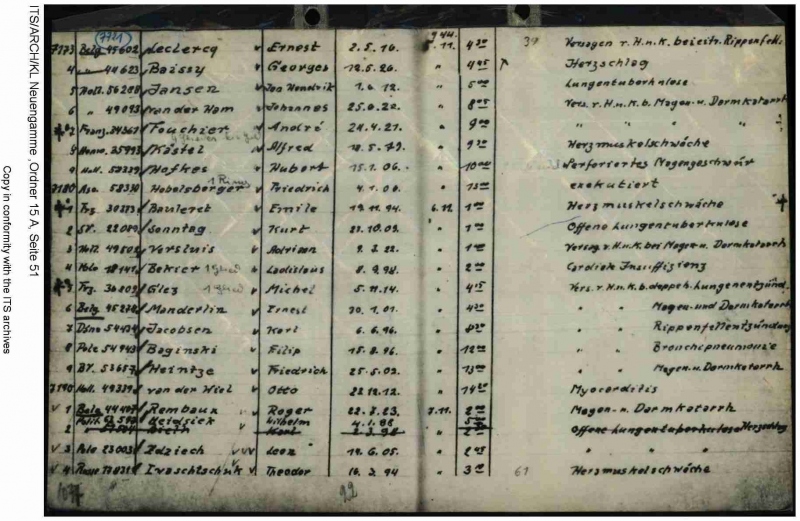 ITS/ARCH/KL Neuengamme, Ordner 15 A, Seite 51
Copy in conformity with the ITS archives
(7721) 944.
7173 Belg 45602 Leclercq v Ernest 2.5.10. 5.11. 4 30 39 Versagen r. H.u.K. bei eitr. Rippenfell.
4 44623 Boissy v Georges 12.5.26. " 4 45 Herzschlag
5 Holl. 56208 Jansen v Jan Hendrik 1.6.12. " 5 00 Lungentuberkulose
6 " 49093 van der Ham v Johannes 25.0.22. " 8 05 Vers. r. H.u.K. b. Magen- u. Darmkatarrh
Franz. 34361 Fouchier v André 24.4.21. " 9 00 " " "
35993 Kästel Alfred " 9 30 Herzmuskelschwäche
9 Holl. Hofkes v Hubert 15.1.06. " 10 Perforiertes Magengeschwür
7180 Aso. 58330 Habelsberger Friedrich 4.1.00. " 15 00 exekutiert
Frz. 30373 Bauleret v Emile 19.11.94. 6.11. 1 00 Herzmuskelschwäche
2 SV. 22009 Sonntag v Kurt 23.10.09. " 1 00 Offene Lungentuberkulose
3 Holl. 49502 Versluis v Adriaan 9.3.22. " 1 00 Versag. r. H.u.K. bei Magen- u. Darmkatarrh
4 Pole 18141 Bekier v Ladislaus 8.9.98. " 2 00 Cardiale Insuffizienz
Frz. 30209 Glez v Michel 5.11.14. " 4 15 Vers. r. H.u.K. b. doppels. Lungenentzünd.
6 Belg 45278 Manderlin v Ernest 30.1.01. " 4 30 " " Magen- und Darmkatarrh
7 Däne 54434 Jacobsen v Karl 6.6.96. " " " Rippenfellentzündung
8 Pole 54943 Baginski v Filip 15.8.96. " 12 00 " " Bronchipneumonie
9 BV. 53657 Heintze v Friedrich 25.5.02. " 13 00 " " Magen- u. Darmkatarrh
7190 Holl. 49339 van der Wiel v Otto 22.12.12. " 14 20 Myocarditis
v 1 Belg 44497 Rembaux v Roger 22.7.23. 7.11. 2 00 Magen- u. Darmkatarrh
Polit. Heidsick Wilhelm 4.1.86
2 Karl 2.3.98 " 2 Offene Lungentuberkulose Herzschlag
v 3 Pole 23003 Zdziech vvv Leon 19.6.05. " 2 45 " "
v 4 Russe Iwaschtschuk v Theodor 16.3.94 " 3 00 61 Herzmuskelschwäche
92